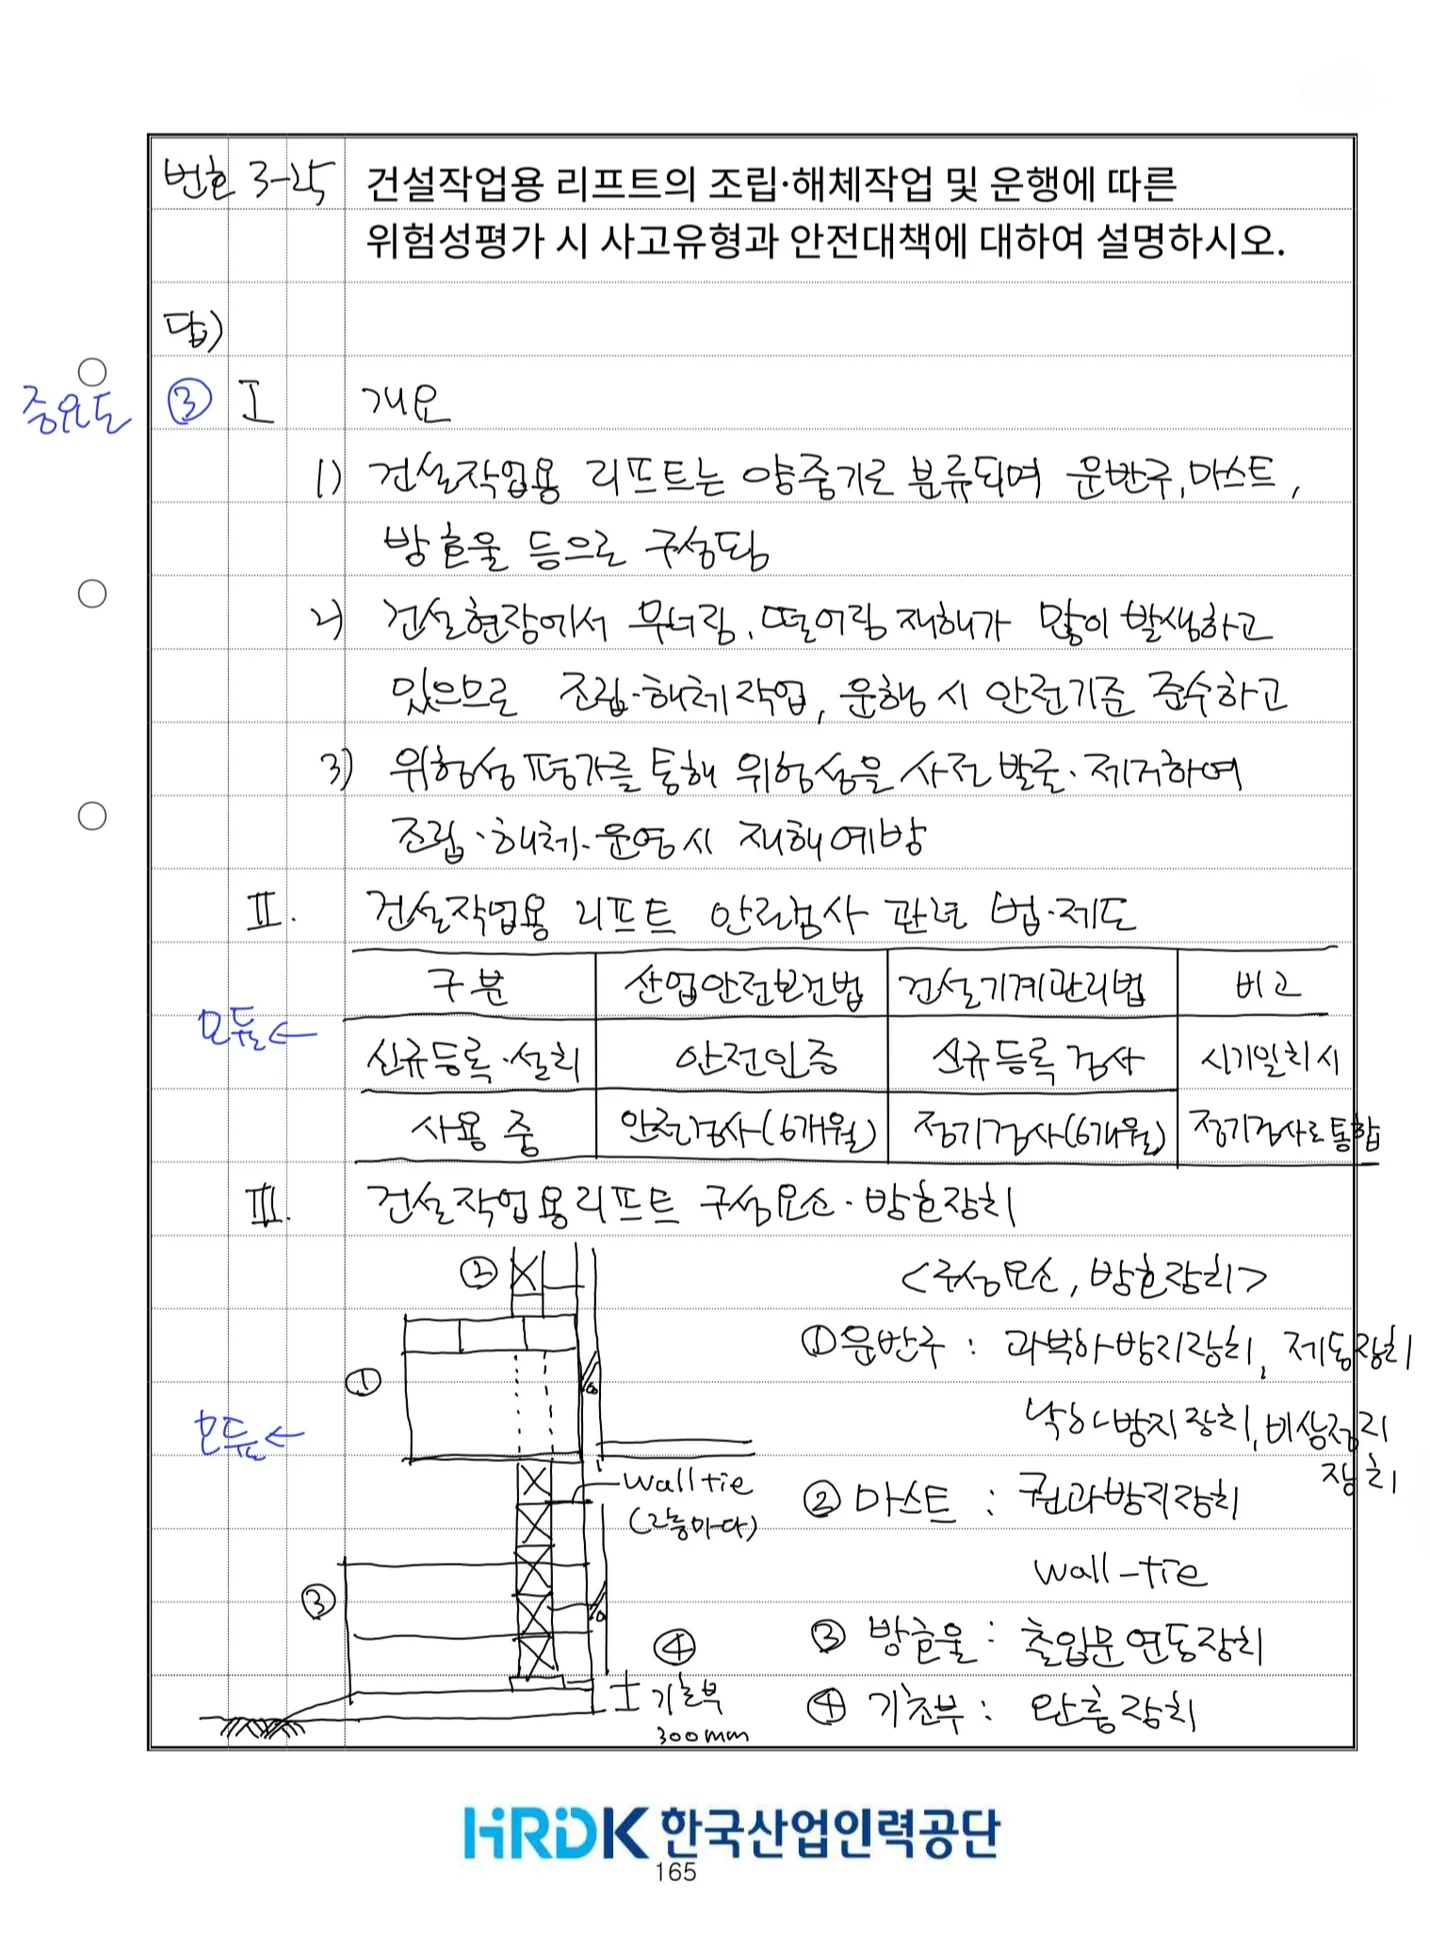 번호 3-25 건설작업용 리프트의 조립·해체작업 및 운행에 따른
위험성평가 시 사고유형과 안전대책에 대하여 설명하시오.
답)
중요도 ③ Ⅰ 개요
1) 건설작업용 리프트는 양중기로 분류되며 운반구, 마스트,
방호울 등으로 구성됨
2) 건설현장에서 무너짐, 떨어짐 재해가 많이 발생하고
있으므로 조립·해체작업, 운행 시 안전기준 준수하고
3) 위험성 평가를 통해 위험성을 사전 발굴·제거하여
조립·해체·운영시 재해예방
Ⅱ. 건설작업용 리프트 안전검사 관련 법·제도
구분 산업안전보건법 건설기계관리법 비고
모듈←
신규등록·설치 안전인증 신규등록 검사 시기일치시
사용 중 안전검사(6개월) 정기검사(6개월) 정기검사로 통합
Ⅲ. 건설작업용리프트 구성요소·방호장치
② <구성요소, 방호장치>
① ①운반구 : 과부하방지장치, 제동장치
모듈← 낙하방지장치, 비상정지
장치
wall tie ② 마스트 : 권과방지장치
(2층마다)
wall-tie
③ ③ 방호울 : 출입문연동장치
④ 기초부 ④ 기초부 : 완충장치
300mm
HRDK 한국산업인력공단
165